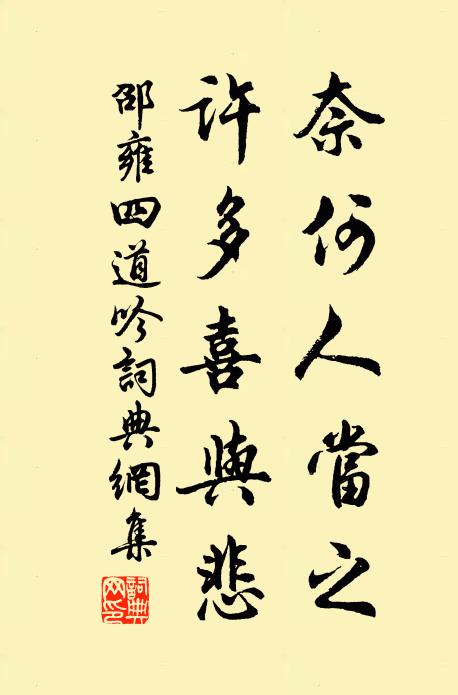 奈何人當之
許多喜與悲
邵雍四道吟詞典網集
詞典
网印